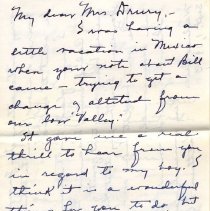 My dear Mrs Drury,-
I was having a
little vacation in Mexico
when your note about Bill
came - trying to get a
change of altitude from
our low "Valley."
It gave me a real
thrill to hear from you
in regard to my boy. I
think it is a wonderful
for you to do, but